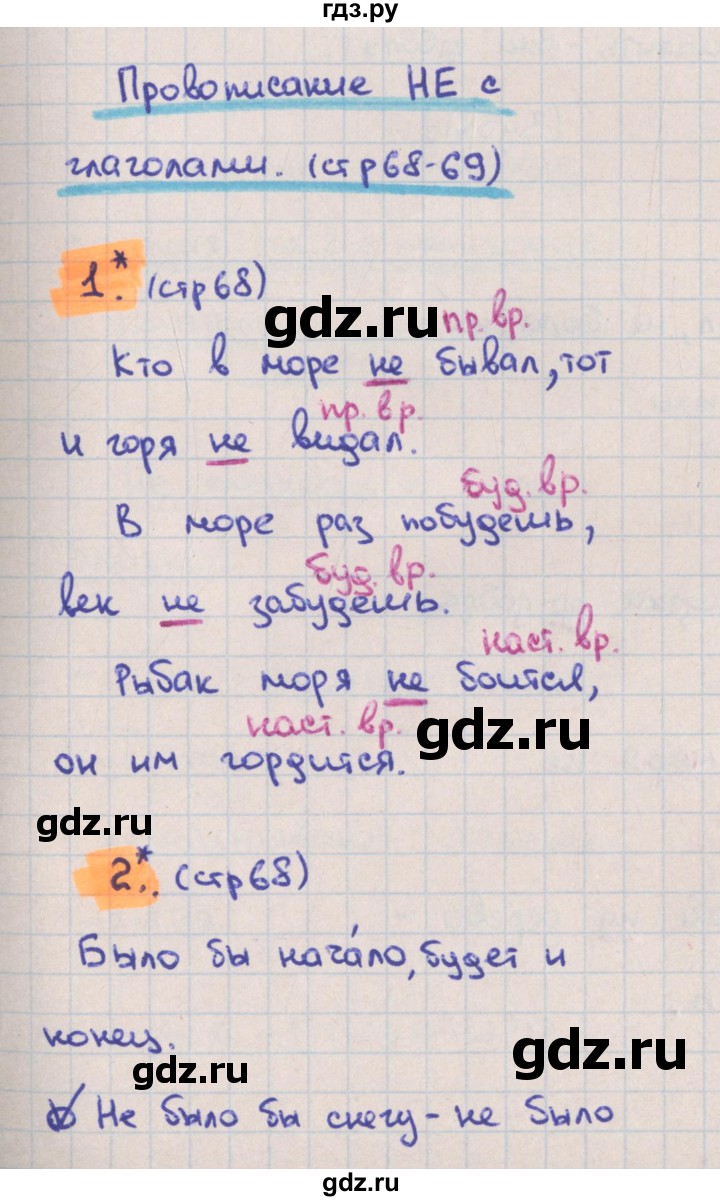 гдз.ру
Провописание НЕ с
глаголами. (стр 68-69)
1.* (стр 68)
gdz.ru пр. вр.
Кто в море не бывал, тот
пр. вр.
и горя не видал.
буд. вр.
В море раз побудешь,
буд. вр.
век не забудешь.
наст. вр.
Рыбак моря не боится,
наст. вр. gdz.ru
он им гордится.
gdz.ru
2.* (стр 68)
Было бы нача́ло, будет и
конец.
gdz.ru gdz.ru
Не было бы снегу - не было
gdz.ru